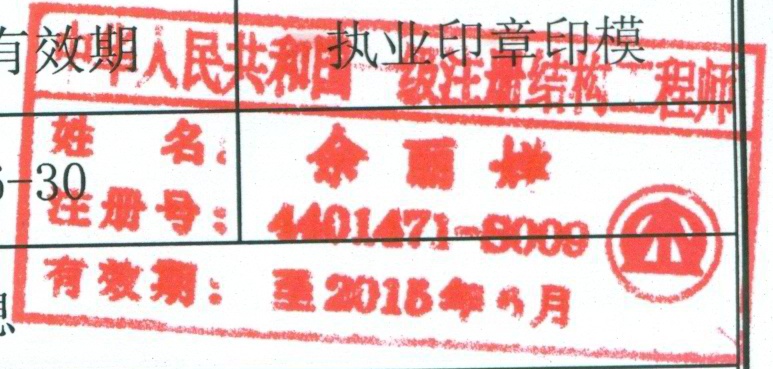 有效期 执业印章印模
中华人民共和国一级注册结构工程师
姓 名: 余 丽
-30
注册号: 4401471-S009
有效期: 至2015年 月